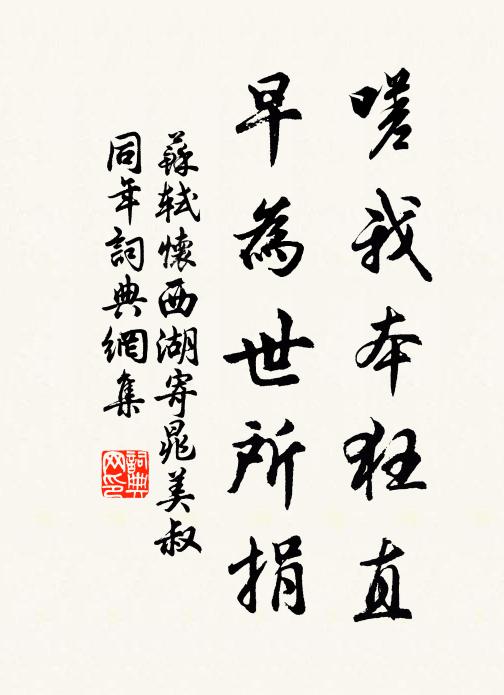 嗟我本狂直
早為世所捐
蘇軾懷西湖寄晁美叔
同年詞典網集
詞典
网印